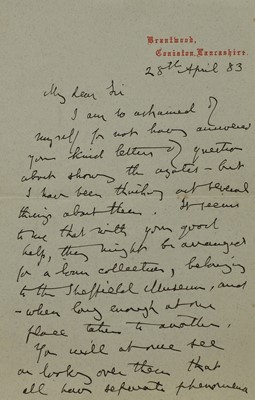 Brantwood,
Coniston, Lancashire.
28th April 83
My dear Sir
I am so ashamed of
myself for not having answered
your kind letters of question
about showing the agates - but
I have been thinking out several
things about them. It seems
to me that with your good
help, they might be arranged
for a loan collection, belonging
to the Sheffield Museum, and
- when long enough at one
place taken to another.
You will at once see
on looking over them that
all have separate phenomena